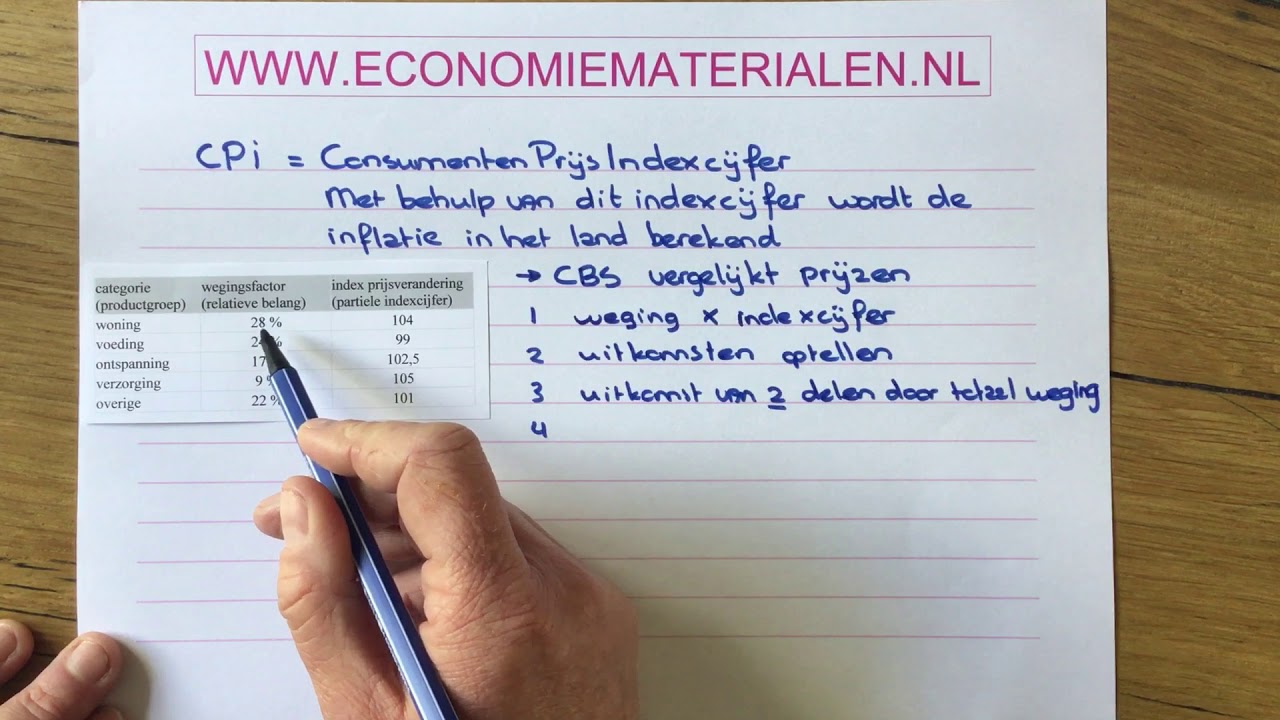 WWW.ECONOMIEMATERIALEN.NL
CPi = ConsumentenPrijsIndexcijfer
Met behulp van dit indexcijfer wordt de
inflatie in het land berekend
→ CBS vergelijkt prijzen
1 weging x indexcijfer
2 uitkomsten optellen
3 uitkomst van 2 delen door totael weging
4
categorie wegingsfactor index prijsverandering
(productgroep) (relatieve belang) (partiele indexcijfer)
woning 28 % 104
voeding 99
ontspanning 17 102,5
verzorging 9 105
overige 22 % 101